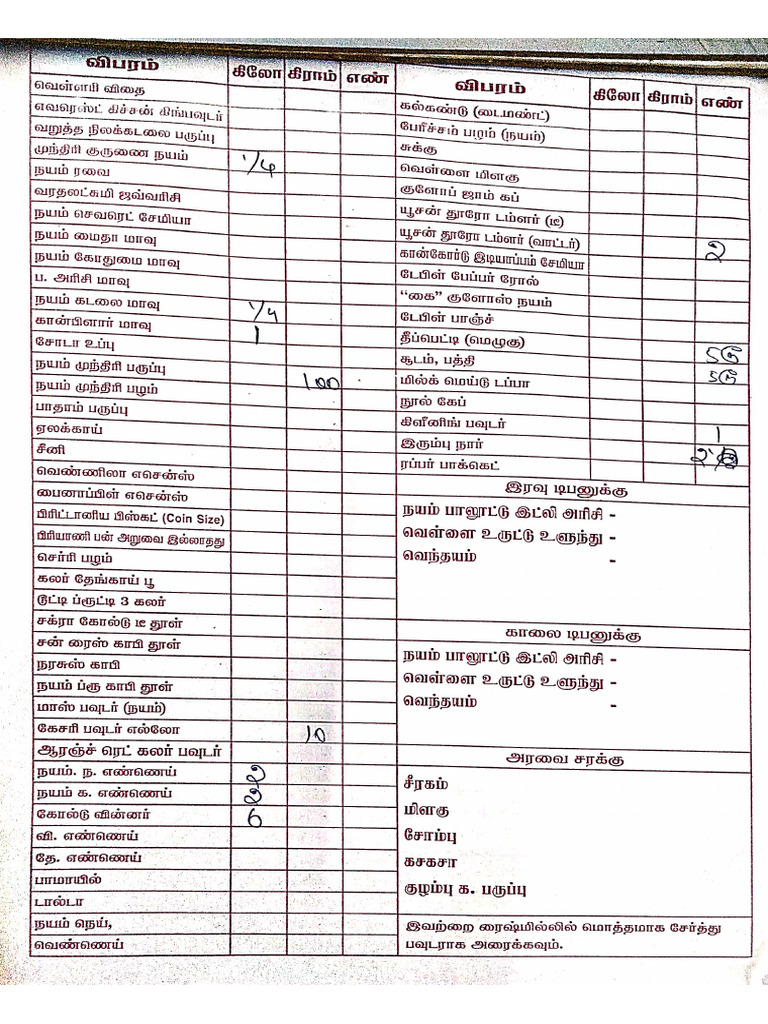 விபரம் கிலோ கிராம் எண்
வெள்ளரி விதை
எவரெஸ்ட் கிச்சன் கிங்பவுடர்
வறுத்த நிலக்கடலை பருப்பு
முந்திரி குருணை நயம் 1/4
நயம் ரவை
வரதலட்சுமி ஜவ்வரிசி
நயம் செவரெட் சேமியா
நயம் மைதா மாவு
நயம் கோதுமை மாவு
ப. அரிசி மாவு
நயம் கடலை மாவு 1/4
கான்பிளார் மாவு 1
சோடா உப்பு
நயம் முந்திரி பருப்பு 100
நயம் முந்திரி பழம்
பாதாம் பருப்பு
ஏலக்காய்
சீனி
வெண்ணிலா எசென்ஸ்
பைனாப்பிள் எசென்ஸ்
பிரிட்டானிய பிஸ்கட் (Coin Size)
பிரியாணி பன் அறுவை இல்லாதது
செர்ரி பழம்
கலர் தேங்காய் பூ
டூட்டி ப்ரூட்டி 3 கலர்
சக்ரா கோல்டு டீ தூள்
சன் ரைஸ் காபி தூள்
நரசுஸ் காபி
நயம் ப்ரூ காபி தூள்
மாஸ் பவுடர் (நயம்)
கேசரி பவுடர் எல்லோ 10
ஆரஞ்ச் ரெட் கலர் பவுடர்
நயம். ந. எண்ணெய் 2
நயம் க. எண்ணெய் 2
கோல்டு வின்னர் 6
வி. எண்ணெய்
தே. எண்ணெய்
பாமாயில்
டால்டா
நயம் நெய்,
வெண்ணெய்
விபரம் கிலோ கிராம் எண்
கல்கண்டு (டைமண்ட்)
பேரீச்சம் பழம் (நயம்)
சுக்கு
வெள்ளை மிளகு
குளோப் ஜாம் கப்
யூசன் தூரோ டம்ளர் (டீ)
யூசன் தூரோ டம்ளர் (வாட்டர்) 2
கான்கோர்டு இடியாப்பம் சேமியா
டேபிள் பேப்பர் ரோல்
“கை” குளோஸ் நயம்
டேபிள் பாஞ்ச்
தீப்பெட்டி (மெழுகு) 5ரூ
சூடம், பத்தி 5ரூ
மில்க் மெய்டு டப்பா
நூல் கேப்
கிளீனிங் பவுடர் 1
இரும்பு நார் 2
ரப்பர் பாக்கெட்
இரவு டிபனுக்கு
நயம் பாலூட்டு இட்லி அரிசி -
வெள்ளை உருட்டு உளுந்து -
வெந்தயம் -
காலை டிபனுக்கு
நயம் பாலூட்டு இட்லி அரிசி -
வெள்ளை உருட்டு உளுந்து -
வெந்தயம் -
அரவை சரக்கு
சீரகம்
மிளகு
சோம்பு
கசகசா
குழம்பு க. பருப்பு
இவற்றை ரைஷ்மில்லில் மொத்தமாக சேர்த்து
பவுடராக அரைக்கவும்.